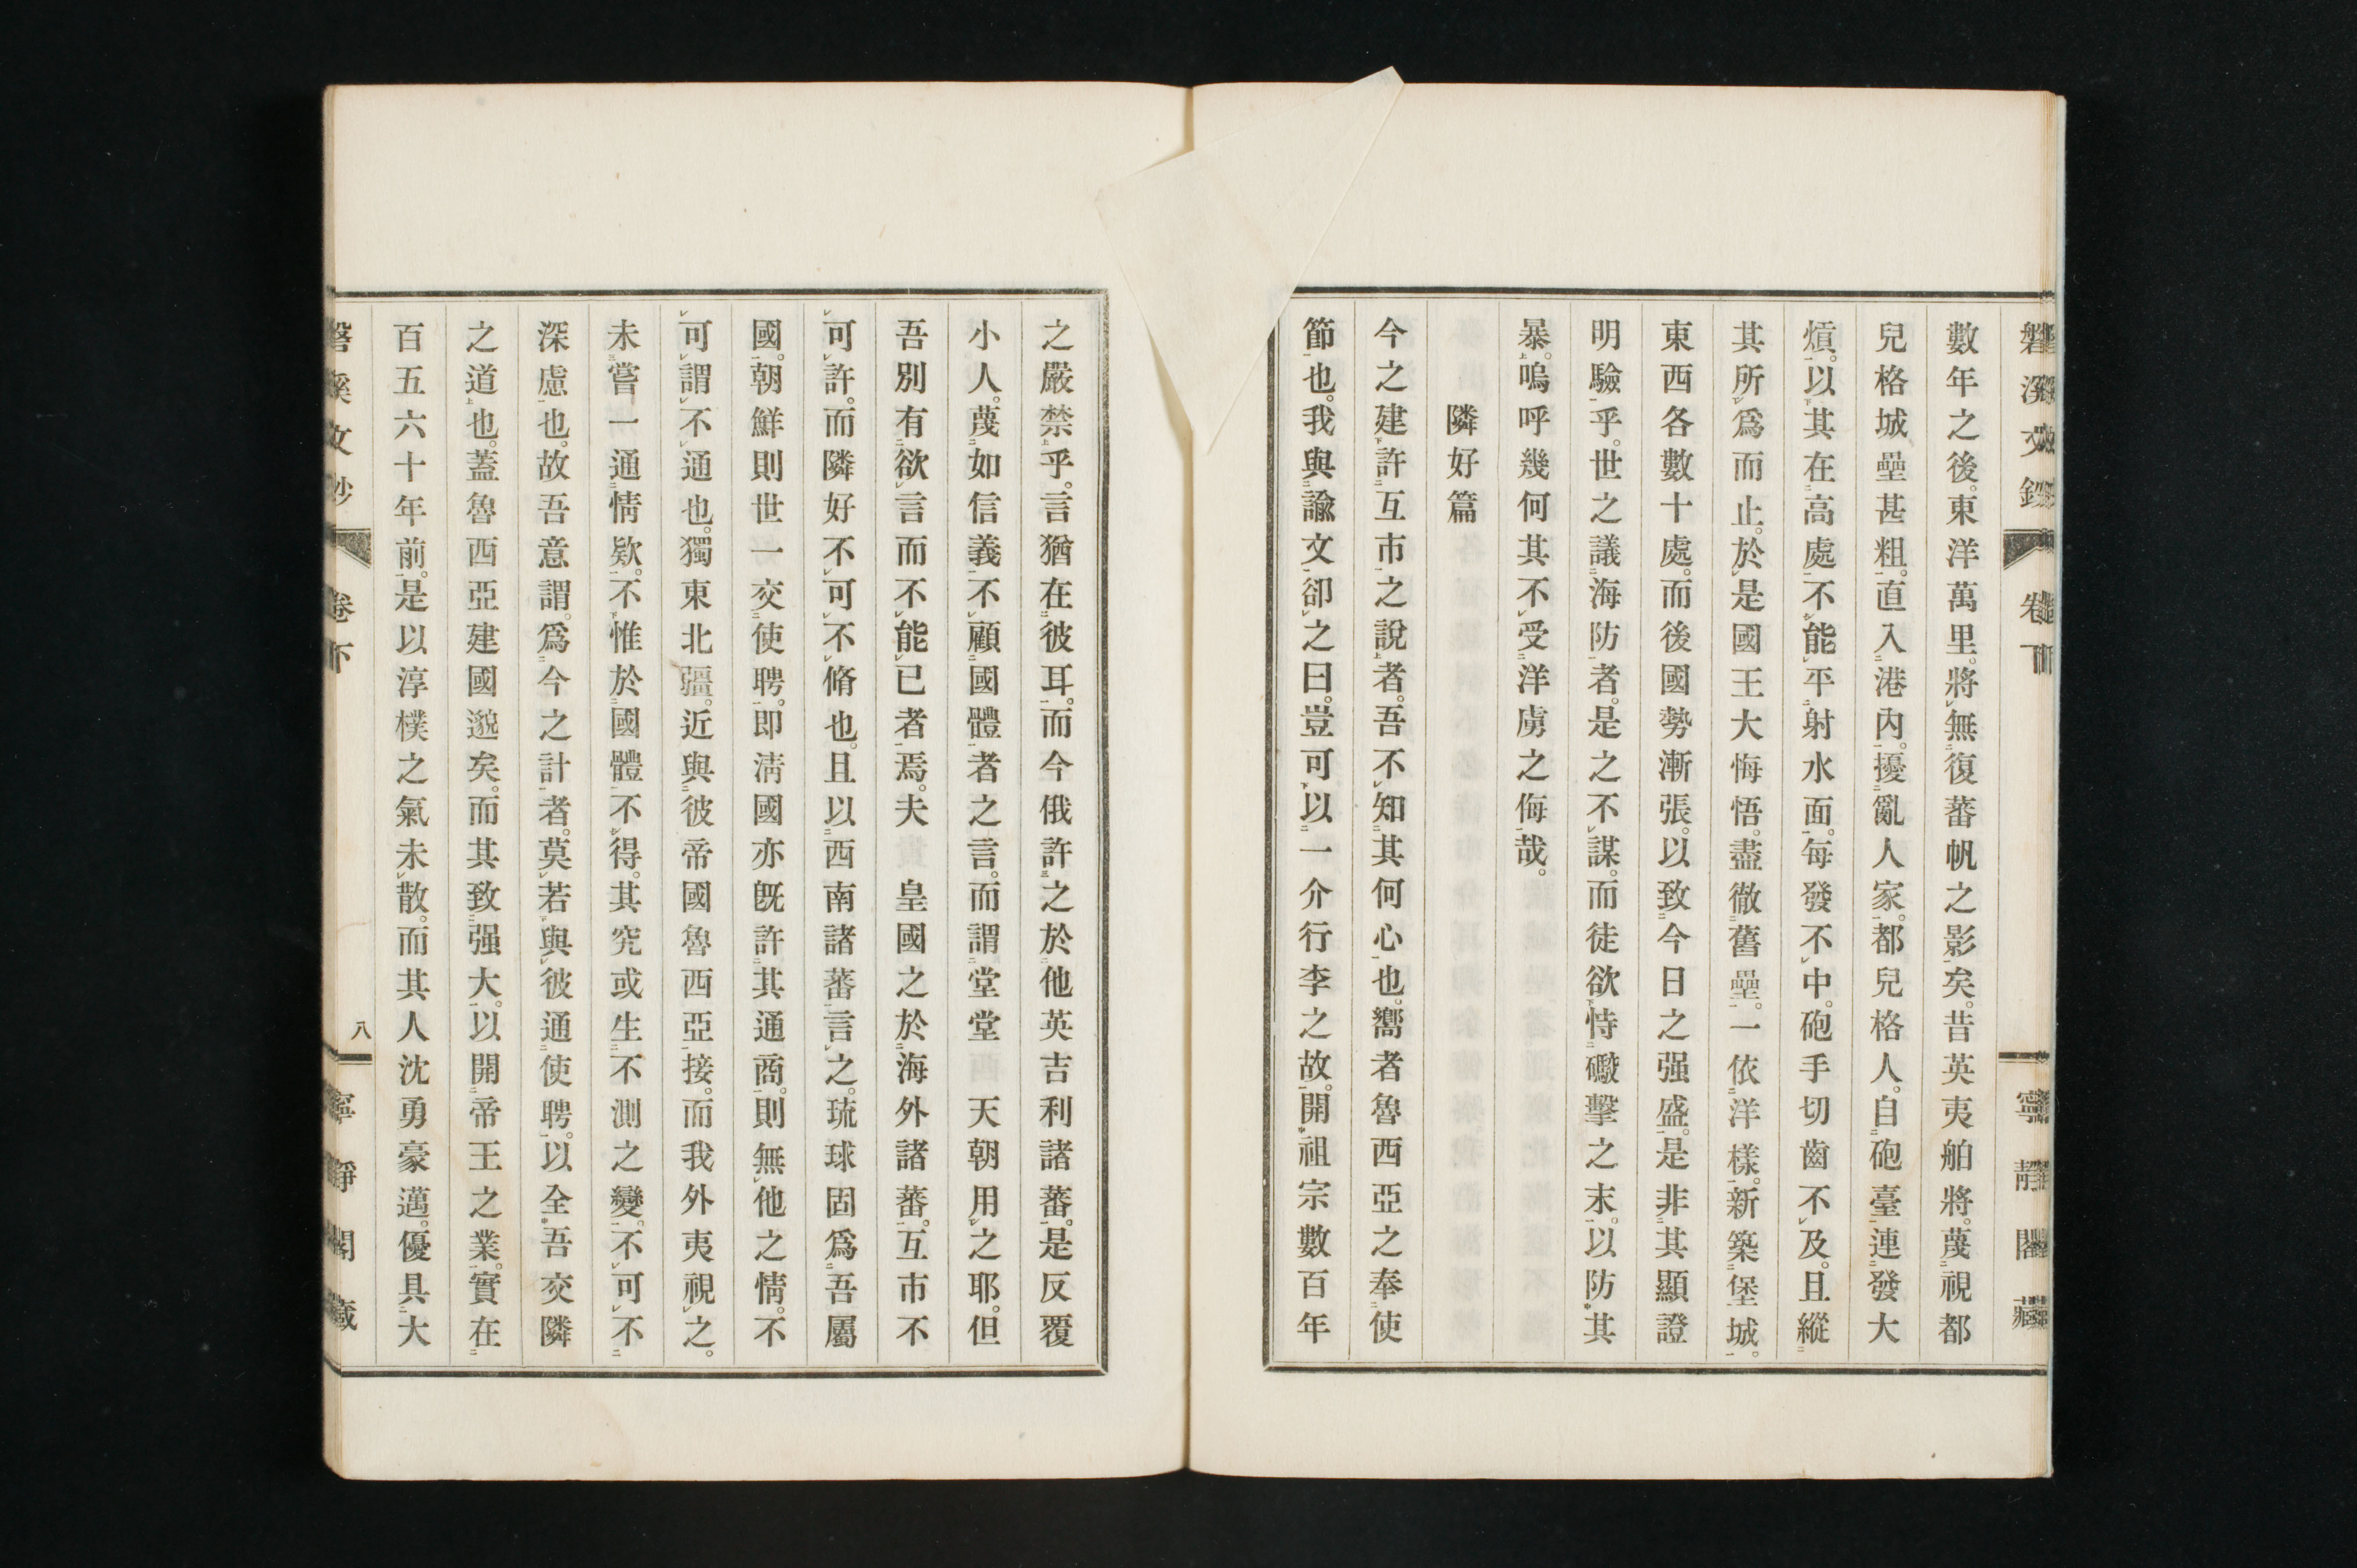 數年之後。東洋萬里。將無復蕃帆之影矣。昔英夷舶將。蔑視都
兒格城壘甚粗。直入港內。擾亂人家。都兒格人。自砲臺連發大
熕。以其在高處不能平射水面。每發不中。砲手切齒不及。且縱
其所爲而止。於是國王大悔悟。盡徹舊壘。一依洋樣。新築堡城。
東西各數十處。而後國勢漸張。以致今日之强盛。是非其顯證
明驗乎。世之議海防者。是之不謀。而徒欲恃礮擊之末。以防其
暴。嗚呼幾何其不受洋虜之侮哉。
隣好篇
今之建許互市之說者。吾不知其何心也。嚮者魯西亞之奉使
節也。我與諭文卻之曰。豈可以一介行李之故。開祖宗數百年
之嚴禁乎。言猶在彼耳。而今俄許之於他英吉利諸蕃。是反覆
小人。蔑如信義不顧國體者之言。而謂堂堂 天朝用之耶。但
吾別有欲言而不能已者焉。夫 皇國之於海外諸蕃。互市不
可許。而隣好不可不脩也。且以西南諸蕃言之。琉球固爲吾屬
國。朝鮮則世一交使聘。即淸國亦旣許其通商。則無他之情。不
可謂不通也。獨東北疆。近與彼帝國魯西亞接。而我外夷視之。
未嘗一通情欵。不惟於國體不得。其究或生不測之變。不可不
深慮也。故吾意謂。爲今之計者。莫若與彼通使聘。以全吾交隣
之道也。蓋魯西亞建國邈矣。而其致强大。以開帝王之業。實在
百五六十年前。是以淳樸之氣未散。而其人沈勇豪邁。優具大
磐溪文鈔 卷下 八 寧靜閣藏